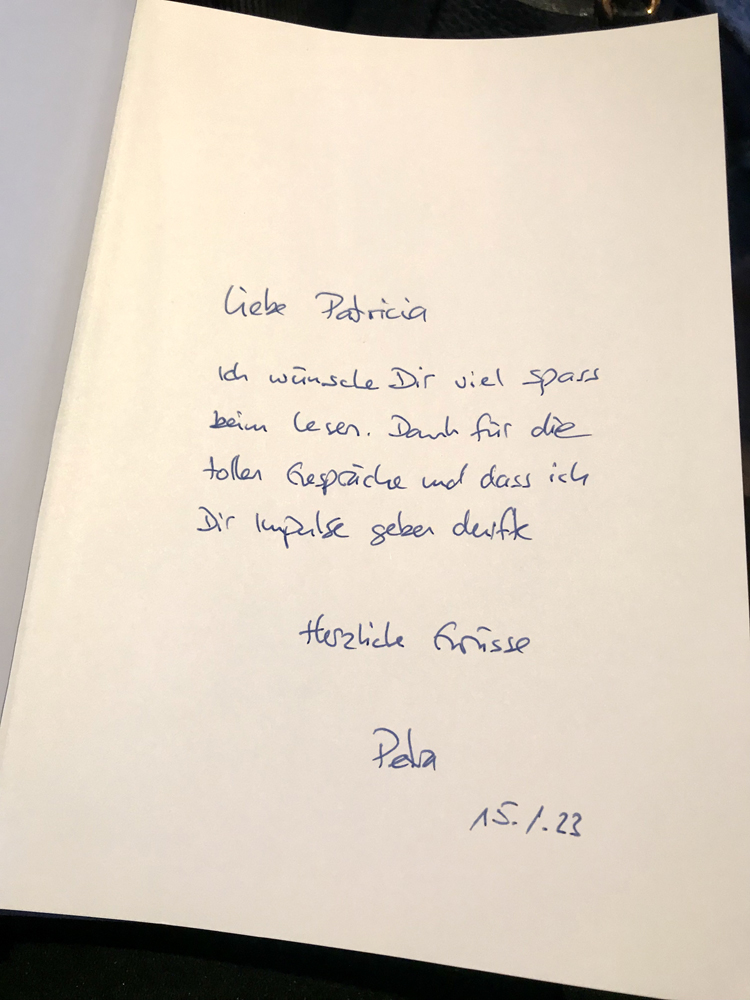 Liebe Patricia
Ich wünsche Dir viel Spass
beim Lesen. Dank für die
tollen Gespräche und dass ich
Dir Impulse geben durfte
Herzliche Grüsse
Petra
15.1.23